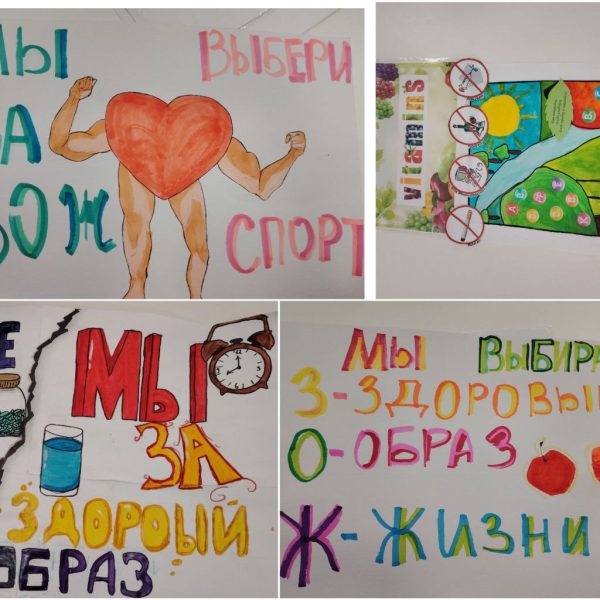 МЫ ВЫБЕРИ
ЗА
ЗОЖ СПОРТ
vitamins
МЫ
ЗА
ЗДОРОЫЙ
ОБРАЗ
МЫ ВЫБИРА
З-ЗДОРОВЫ
О-ОБРАЗ
Ж-ЖИЗНИ